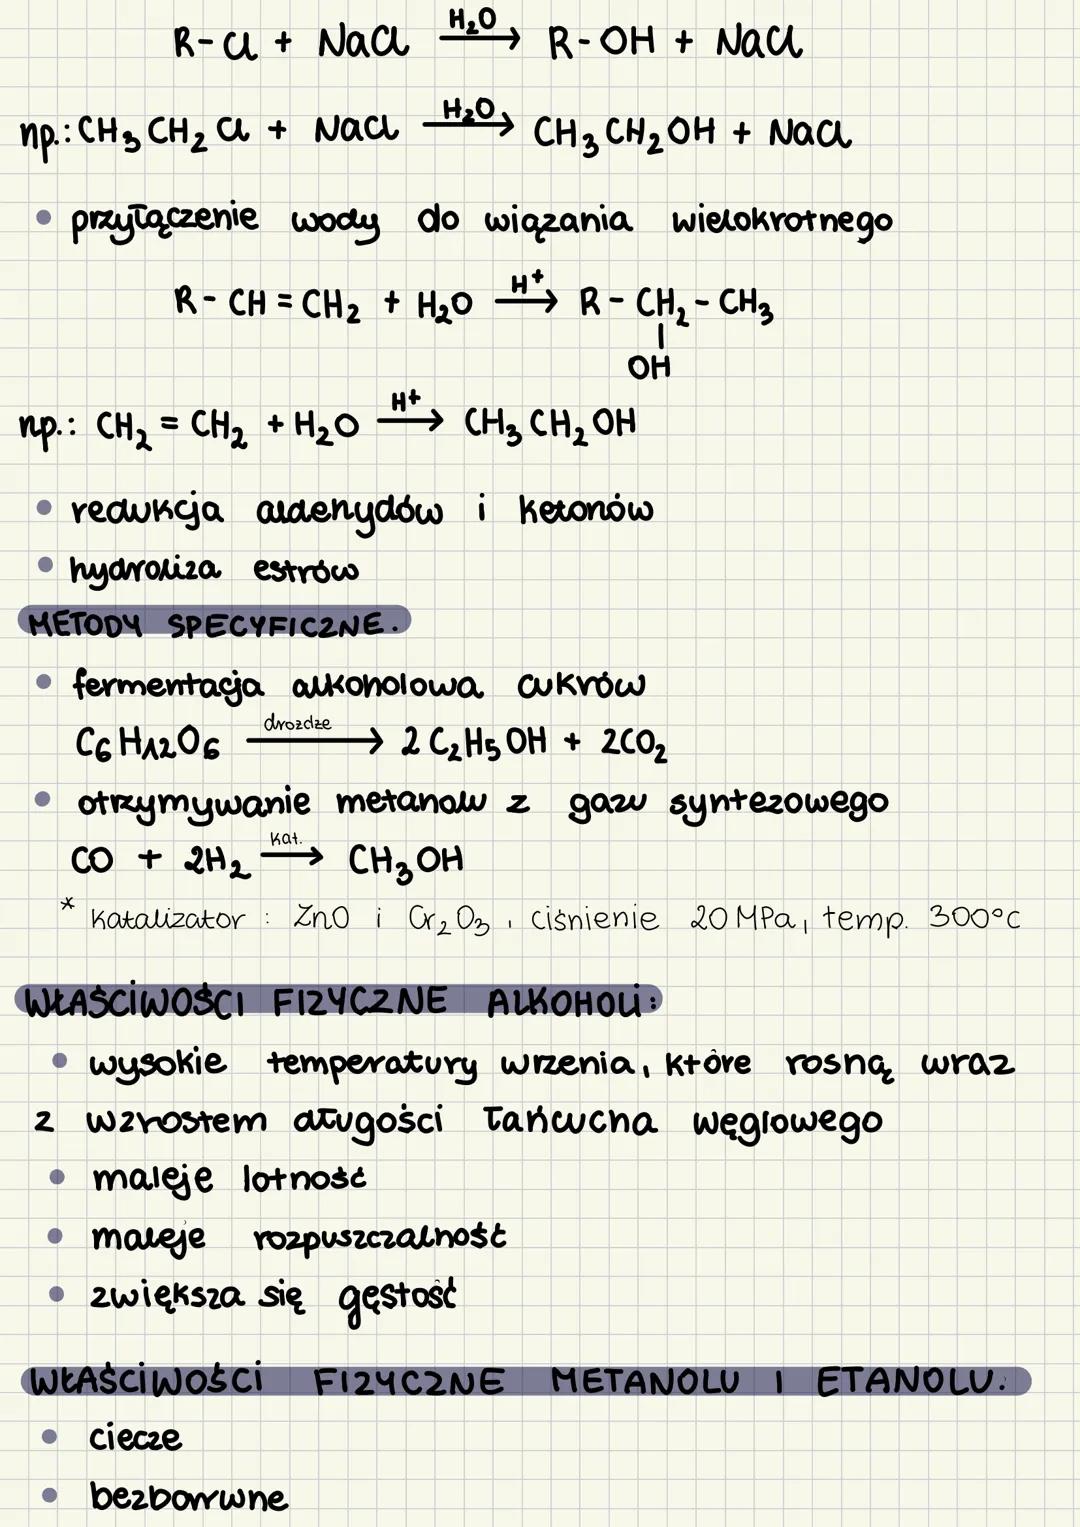 R-Cl + NaCl H₂O → R-OH + NaCl
np.: CH₃CH₂Cl + NaCl H₂O → CH₃CH₂OH + NaCl
• przyłączenie wody do wiązania wielokrotnego
R-CH=CH₂ + H₂O H⁺ → R-CH₂-CH₃
|
OH
np.: CH₂=CH₂ + H₂O H⁺ → CH₃CH₂OH
• redukcja aldehydów i ketonów
• hydroliza estrów
METODY SPECYFICZNE.
• fermentacja alkoholowa cukrów
C₆H₁₂O₆ drożdże → 2C₂H₅OH + 2CO₂
• otrzymywanie metanolu z gazu syntezowego
CO + 2H₂ kat. → CH₃OH
* Katalizator : ZnO i Cr₂O₃, ciśnienie 20 MPa, temp. 300°C
WŁAŚCIWOŚCI FIZYCZNE ALKOHOLi:
• wysokie temperatury wrzenia, które rosną wraz
z wzrostem długości łańcucha węglowego
• maleje lotność
• maleje rozpuszczalność
• zwiększa się gęstość
WŁAŚCIWOŚCI FIZYCZNE METANOLU I ETANOLU.
• ciecze
• bezbarwne